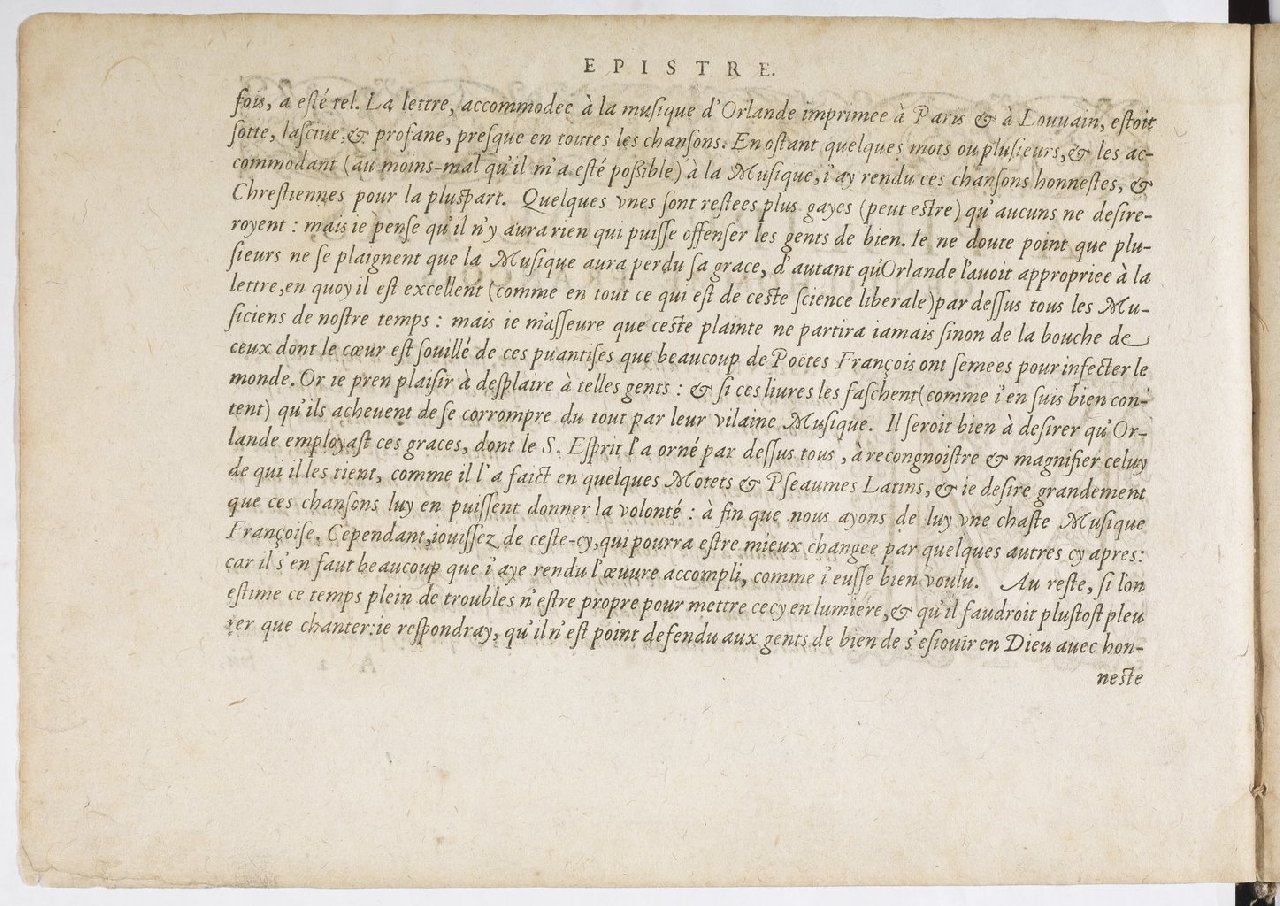 EPISTRE.
fois, a esté tel. La lettre, accommodee à la musique d'Orlande imprimee à Paris & à Louvain, estoit
sotte, lasciue, & profane, presque en toutes les chansons. En ostant quelques mots ou plusieurs, & les ac-
commodant (au moins-mal qu'il m'a esté possible) à la Musique, i'ay rendu ces chansons honnestes, &
Chrestiennes pour la pluspart. Quelques vnes sont restees plus gayes (peut estre) qu'aucuns ne desire-
royent : mais ie pense qu'il n'y aura rien qui puisse offenser les gents de bien. Ie ne doute point que plu-
sieurs ne se plaignent que la Musique aura perdu sa grace, d'autant qu'Orlande l'auoit appropriee à la
lettre, en quoy il est excellent (comme en tout ce qui est de ceste science liberale) par dessus tous les Mu-
siciens de nostre temps : mais ie m'asseure que ceste plainte ne partira iamais sinon de la bouche de
ceux dont le cœur est souillé de ces puantises que beaucoup de Poëtes François ont semees pour infecter le
monde. Or ie pren plaisir à desplaire à telles gents : & si ces liures les faschent (comme i'en suis bien con-
tent) qu'ils acheuent de se corrompre du tout par leur vilaine Musique. Il seroit bien à desirer qu'Or-
lande employast ces graces, dont le S. Esprit l'a orné par dessus tous, à recongnoistre & magnifier celuy
de qui il les tient, comme il l'a faict en quelques Motets & Pseaumes Latins, & ie desire grandement
que ces chansons luy en puissent donner la volonté : à fin que nous ayons de luy vne chaste Musique
Françoise. Cependant, iouissez de ceste-cy, qui pourra estre mieux changee par quelques autres cy apres:
car il s'en faut beaucoup que i'aye rendu l'œuure accompli, comme i'eusse bien voulu. Au reste, si l'on
estime ce temps plein de troubles n'estre propre pour mettre cecy en lumiere, & qu'il faudroit plustost pleu
rer que chanter: ie respondray, qu'il n'est point defendu aux gents de bien de s'esiouir en Dieu auec hon-
neste